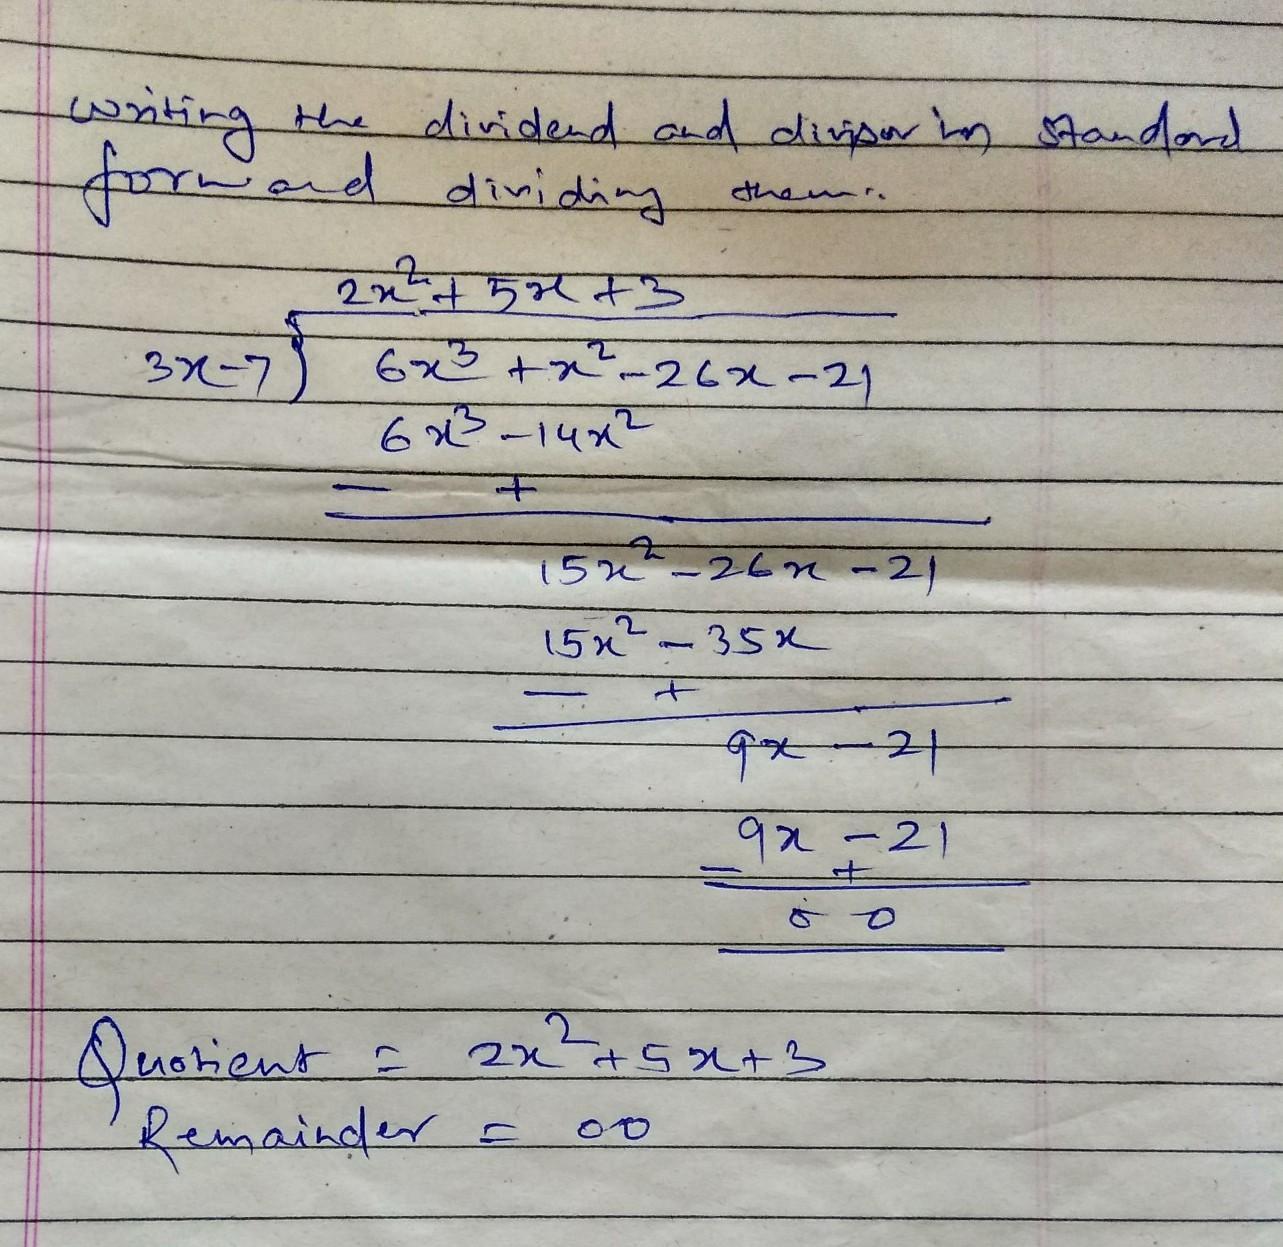 writing the dividend and divisor in standard
form and dividing them:
2x² + 5x + 3
3x-7) 6x³ + x² - 26x - 21
6x³ - 14x²
- +
15x² - 26x - 21
15x² - 35x
- +
9x - 21
9x - 21
- +
0 0
Quotient = 2x² + 5x + 3
Remainder = 00